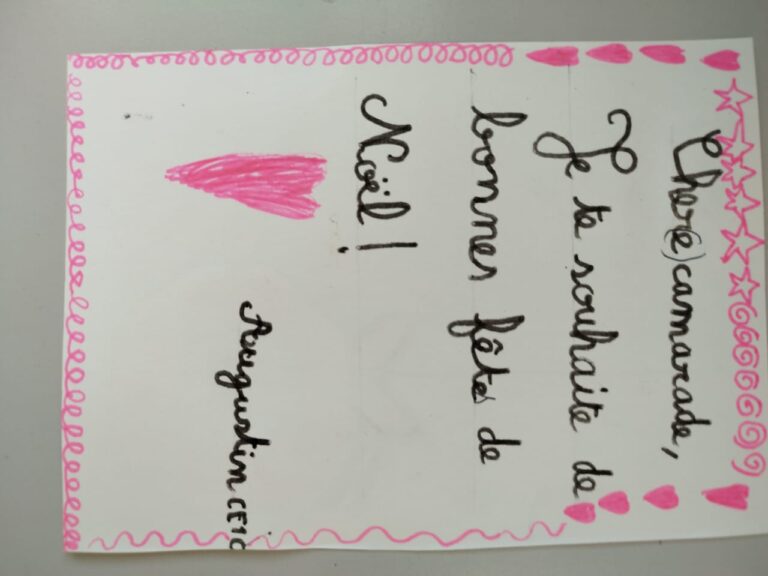 Cher(e) camarade,
Je te souhaite de
bonnes fêtes de
Noël !
Augustin CE1C